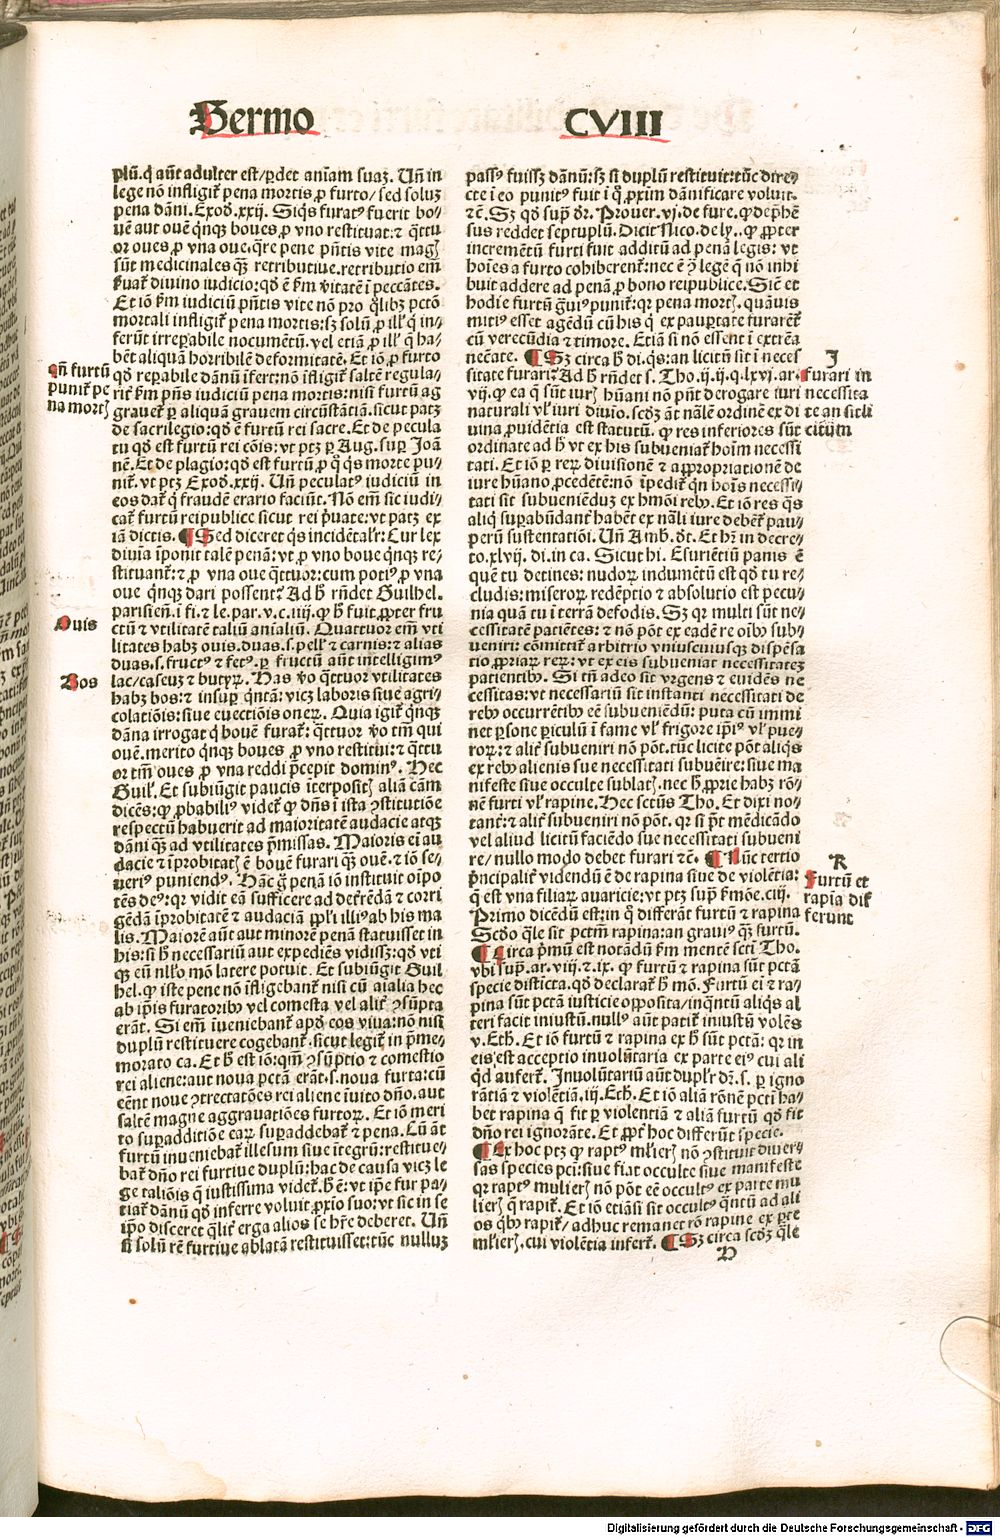 Sermo CVIII
plū. q̄ aūt adulter est/ ꝑdet aniam suaꝫ. Uñ in
lege nō infligit᷑ pena mortis ꝓ furto/ sed soluꝫ
pena dāni. Exoď. xxij. Siq̄s furatꝰ fuerit bo-
uē aut ouē qnqꝫ boues ꝓ vno restituat: ⁊ q̄ttu
or oues ꝓ vna oue. q̄re pene pn̄tis vite magꝭ
sūt medicinales qꝫ retributiue. retributio em̄
ẜuat᷑ diuino iudicio: qď ē ẜm v̄itatē i peccātes.
Et iō ẜm iudiciū pn̄tis vite nō pro q̄libꝫ pctō
mortali infligit᷑ pena mortis: sꝫ solū ꝓ ill̓ q̄ in-
ferūt irreꝑabile nocumētū. vel etiā ꝓ ill̓ q̄ ha-
bēt aliquā horribilē deformitatē. Et iō ꝓ furto
qn̄ furtū
punit᷑ pe
na mortꝭ
qď reꝑabile dānū īfert: nō īfligit᷑ saltē regula-
rit᷑ ẜm pn̄s iudiciū pena mortis: nisi furtū ag
grauet᷑ ꝑ aliquā grauem circūstātiā. sicut patꝫ
de sacrilegio: qď ē furtū rei sacre. Et de pecula
tu qď est furtū rei cōis: vt ptꝫ ꝑ Aug. suꝑ Joā
nē. Et de plagio: qď est furtū ꝓ q̄ q̄s morte pu-
nit᷑. vt ptꝫ Exoď. xxij. Uñ peculatꝰ iudiciū in
eos dat᷑ q̄ fraudē erario faciūt. Nō em̄ sic iudi-
cat᷑ furtū reipublice sicut rei p̄uate: vt patꝫ ex
iā dictis. ¶ Sed diceret q̄s incidētal̓r: Cur lex
diuia īponit talē penā: vt ꝓ vno boue qnqꝫ re-
stituant᷑: ⁊ ꝓ vna oue q̄ttuor: cum potiꝰ ꝓ vna
oue q̄nqꝫ dari possent? Ad ħ rn̄det Guilhel.
parisien̄. i fi. ⁊ le. par. v. c. iiij. ꝙ ħ fuit ꝓpter fru
Ouis
ctū ⁊ vtilitatē taliū anialiū. Quattuor em̄ vti
litates habꝫ ouis. duas. s. pell̓ ⁊ carnis: ⁊ alias
duas. s. fructꝰ ⁊ fetꝰ. ꝑ fructū aūt intelligimꝰ
Bos
lac/ caseuꝫ ⁊ butyrꝝ. Has v̄o q̄ttuor vtilitates
habꝫ bos: ⁊ insuꝑ q̄ntā: vicꝫ laboris siue agri-
colatiōis: siue euectiōis onerꝝ. Quia igit᷑ qnqꝫ
dāna irrogat q̄ bouē furat᷑: q̄ttuor v̄o tm̄ qui
ouē. merito q̄nqꝫ boues ꝓ vno restitui: ⁊ q̄ttu
or tm̄ oues ꝓ vna reddi p̄cepit dominꝰ. Hec
Guil̓. Et subiūgit paucis īterpositꝭ aliā cām
dicēs: ꝙ ꝓbabiliꝰ videt᷑ ꝙ dn̄s i ista ꝯstitutiōe
respectū habuerit ad maioritatē audacie atqꝫ
dāni qꝫ ad vtilitates p̄missas. Maioris ei̅ au
dacie ⁊ īprobitatꝭ ē bouē furari qꝫ ouē. ⁊ iō se-
ueriꝰ puniendꝰ. Hāc g̊ penā iō instituit oīpo
tēs deꝰ: qr vidit eā sufficere ad detrēdā ⁊ corri
gēdā īprobitatē ⁊ audaciā ppl̓i illiꝰ ab his ma
lis. Maiorē aūt aut minorē penā statuisset in
his: si ħ necessariū aut expediēs vidissꝫ: qď vti
qꝫ eū nll̓o mō latere potuit. Et subiūgit Guil
hel. ꝙ iste pene nō īfligebant᷑ nisi cū aīalia hec
ab ip̄is furatoribꝰ vel comesta vel alit᷑ ꝯsūpta
erāt. Si em̄ īueniebant᷑ apď eos viua: nō nisi
duplū restituere cogebant᷑. sicut legit᷑ in p̄me-
morato ca. Et ħ est iō: qm̄ ꝯsūptio ⁊ comestio
rei aliene: aut noua pctā erāt. s. noua furta: cū
eēnt noue ꝯtrectatōes rei aliene iuito dn̄o. aut
saltē magne aggrauatiōes furtoꝝ. Et iō meri
to suꝑadditiōe eaꝝ suꝑaddebat᷑ ⁊ pena. Cū āt
furtū inueniebat᷑ illesum siue ītegrū: restitue-
bat᷑ dn̄o rei furtiue duplū: hac de causa vicꝫ le
ge taliōis q̄ iustissima videt᷑. h̄ ē: vt ip̄e fur pa-
tiat᷑ dānū qď inferre voluit ꝓxīo suo: vt sic in se
ip̄o disceret q̄lit᷑ erga alios se hr̄e deberet. Uñ
si solū rē furtiue ablatā restituisset: tūc nulluꝫ
passꝰ fuissꝫ dānū: sꝫ si duplū restituit: tūc dire-
cte i eo punitꝰ fuit i q̄ ꝓxim̄ dānificare voluit.
⁊c̄. Sꝫ qď sup̄ dr̄. Prouer. vj. de fure. ꝙ dep̄hē
sus reddet septuplū. Dicit Nico. de ly.. ꝙ ꝓpter
incremētū furti fuit additū ad penā legis: vt
hoīes a furto cohiberent᷑: nec ē ꝯ legē q̄ nō inhi
buit addere ad penā ꝓ bono reipublice. Sic̄ et
hodie furtū g̊uiꝰ punit᷑: qr pena mortꝭ. quāuis
mitiꝰ esset agēdū cū his q̄ ex pauꝑtate furarēt᷑
cū verecūdia ⁊ timore. Etiā si nō essent i extrēa
necātē. ¶ Sꝫ circa ħ di. qs: an licitū sit i neces
J
furari in
necessita
te an sit li
citum
sitate furari? Ad ħ rn̄det s. Tho. ij. ij. q. lxvi. ar.
vij. ꝙ ea q̄ sūt iurꝭ hūani nō pn̄t derogare iuri
naturali vl̓ iuri diuio. scďꝫ āt nālē ordinē ex di
uina ꝓuidētia est statutū. ꝙ res inferiores sūt
ordinate ad ħ vt ex his subueniat᷑ hoīm necessi
tati. Et iō ꝑ reꝝ diuisionē ⁊ appropriationē de
iure hūano ꝓcedētē: nō īpedit᷑ qn hoīs necessi-
tati sit subueniēduꝫ ex hmōi rebꝰ. Et iō res q̄s
aliq̄ suꝑabūdant᷑ habēt ex nāli iure debēt᷑ pau-
perū sustentatiōi. Uñ Amb. dt. Et hr̄ in decre-
to. xlvij. di. in ca. Sicut hi. Esuriētiū panis ē
quē tu detines: nudoꝝ indumētū est qď tu re-
cludis: miseroꝝ redēptio ⁊ absolutio est pecu-
nia quā tu i terrā defodis. Sꝫ qr multi sūt ne-
cessitatē patiētes: ⁊ nō pōt ex eadē re oībꝰ sub-
ueniri: cōmittit᷑ arbitrio vniuscuiusqꝫ dispēsa
tio ꝓpriaꝝ reꝝ: vt ex eis subueniat necessitateꝫ
patientibꝰ. Si tn̄ adeo sit vrgens ⁊ euidēs ne
cessitas: vt necessariū sit instanti necessitati de
rebꝰ occurrētibꝰ eē subueniēdū: puta cū immi
net ꝑsone ꝑiculū i fame vl̓ frigore ip̄iꝰ vl̓ pue-
roꝝ: ⁊ alit᷑ subueniri nō pōt. tūc licite pōt aliqs
ex rebꝰ alienis sue necessitati subuēire: siue ma
nifeste siue occulte sublatꝭ. nec ħ ꝓprie habꝫ rō-
nē furti vl̓ rapine. Hec sctūs Tho. Et dixi no-
tant᷑: ⁊ alit᷑ subueniri nō pōt. qr si pōt mēdicādo
vel aliud licitū faciēdo sue necessitati subueni
re/ nullo modo debet furari ⁊c̄. ¶ Nūc tertio
R
Furtū et
rapia dif
ferunt
p̄ncipalit᷑ videndū ē de rapina siue de violētia:
q̄ est vna filiaꝝ auaricie: vt ptꝫ sup̄ ẜmōe. ciij.
Primo dicēdū est: in q̄ differāt furtū ⁊ rapina
Scďo q̄le sit pctm̄ rapina: an grauiꝰ qꝫ furtū.
¶ Circa p̄mū est notādū ẜm mentē scti Tho.
vbi sup̄. ar. viij. ⁊. ix. ꝙ furtū ⁊ rapina sūt pctā
specie disticta. qď declarat᷑ ħ mō. Furtū ei̅ ⁊ ra-
pina sūt pctā iusticie opposita/ inq̄ntū aliqs al
teri facit iniustū. nullꝰ aūt patit᷑ iniustū volēs
v. Eth. Et iō furtū ⁊ rapina ex ħ sūt pctā: qr in
eis est acceptio inuolūtaria ex parte eiꝰ cui ali
qd aufert᷑. Inuolūtariū aūt dupl̓r dr̄. s. ꝑ igno
rātiā ⁊ violētiā. iij. Eth. Et iō aliā rōnē pcti ha-
bet rapina q̄ fit ꝑ violentiā ⁊ aliā furtū qď fit
dn̄o rei ignorāte. Et ꝓpt̓ hoc differūt specie.
¶ Ex hoc ptꝫ ꝙ raptꝰ ml̓ierꝭ nō ꝯstituit diuer-
sas species pcti: siue fiat occulte siue manifeste
qr raptꝰ mulierꝭ nō pōt eē occultꝰ ex parte mu
lierꝭ q̄ rapit᷑. Et iō etiāsi sit occultꝰ q̄ntū ad ali
os qbꝰ rapit᷑/ adhuc remanet rō rapine ex ꝑte
ml̓ierꝭ. cui violētia infert᷑. ¶ Sꝫ circa scďꝫ q̄le
D
Digitalisierung gefördert durch die Deutsche Forschungsgemeinschaft - DFG